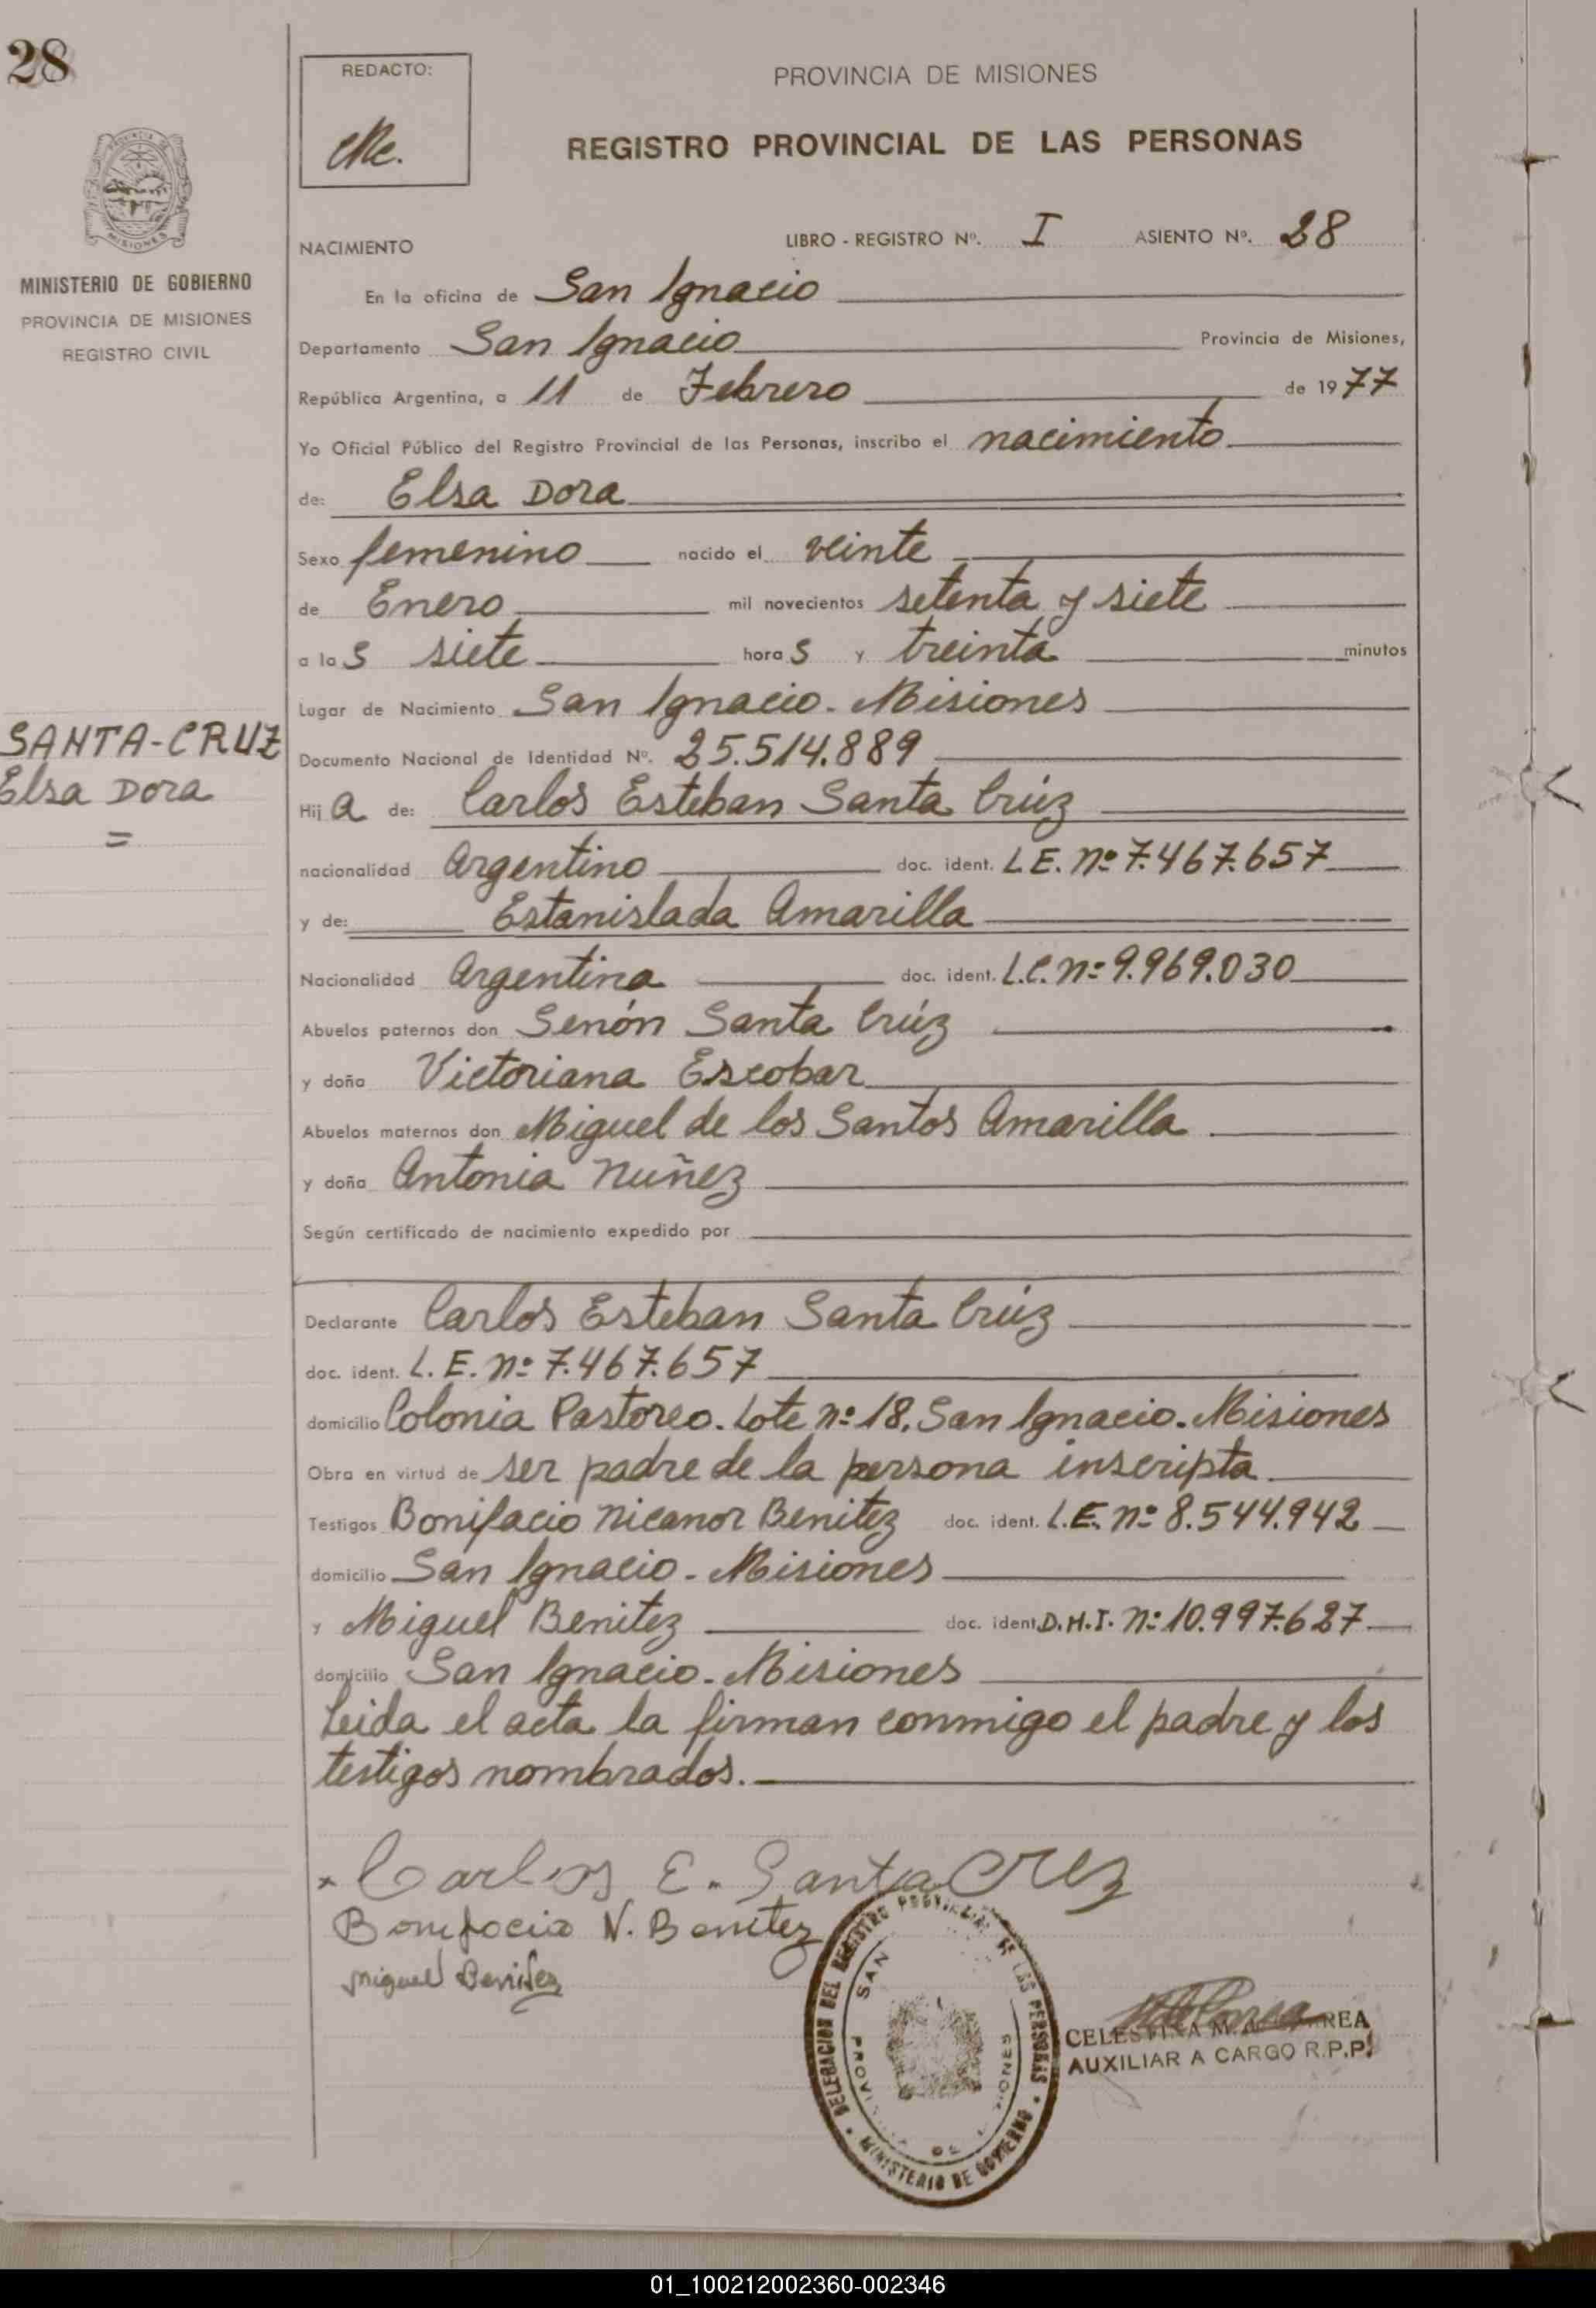 28
REDACTO:
PROVINCIA DE MISIONES
REGISTRO PROVINCIAL DE LAS PERSONAS
MISIONES
MINISTERIO DE GOBIERNO
PROVINCIA DE MISIONES
REGISTRO CIVIL
NACIMIENTO LIBRO - REGISTRO Nº. I ASIENTO Nº. 28
En la oficina de San Ignacio
Departamento San Ignacio Provincia de Misiones,
República Argentina, a 11 de Febrero de 1977
Yo Oficial Público del Registro Provincial de las Personas, inscribo el nacimiento
de: Elsa Dora
Sexo femenino nacido el veinte
de Enero mil novecientos setenta y siete
a las siete horas y treinta minutos
Lugar de Nacimiento San Ignacio - Misiones
SANTA-CRUZ
Elsa Dora
=
Documento Nacional de Identidad Nº. 25.514.889
Hija de: Carlos Esteban Santa Crúz
nacionalidad Argentino doc. ident. L.E. nº 7.467.657
y de: Estanislada Amarilla
Nacionalidad Argentina doc. ident. L.C. nº 9.969.030
Abuelos paternos don Senón Santa Crúz
y doña Victoriana Escobar
Abuelos maternos don Miguel de los Santos Amarilla
y doña Antonia Nuñez
Según certificado de nacimiento expedido por
Declarante Carlos Esteban Santa Crúz
doc. ident. L.E. nº 7.467.657
domicilio Colonia Pastoreo. Lote nº 18. San Ignacio. Misiones
Obra en virtud de ser padre de la persona inscripta
Testigos Bonifacio Nicanor Benitez doc. ident. L.E. nº 8.544.942
domicilio San Ignacio - Misiones
y Miguel Benitez doc. ident. D.N.I. nº 10.997.627
domicilio San Ignacio - Misiones
Leida el acta la firman conmigo el padre y los
testigos nombrados.
Carlos E. Santa Cruz
Bonifacio N. Benitez
Miguel Benitez
DELEGACION DEL REGISTRO PROVINCIAL DE LAS PERSONAS
SAN
MINISTERIO DE GOBIERNO
CELESTINA M.
AUXILIAR A CARGO R.P.P.
01_100212002360-002346